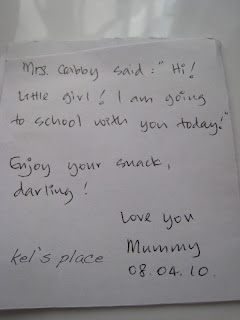 Mrs. Gabby said : " Hi!
Little girl! I am going
to school with you today!"
Enjoy your snack,
darling!
Love you
Mummy
kel's place
08.04.10.